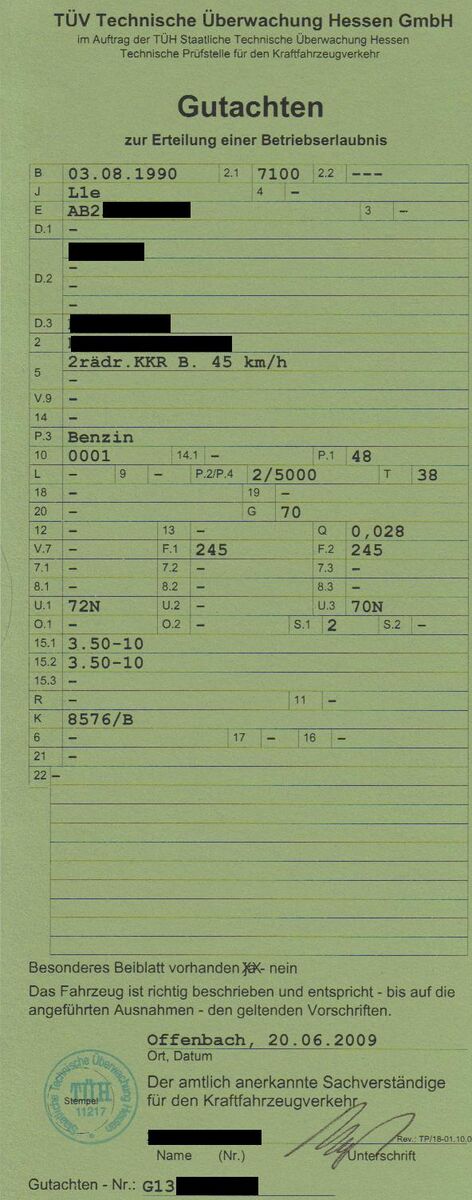 TÜV Technische Überwachung Hessen GmbH
im Auftrag der TÜH Staatliche Technische Überwachung Hessen
Technische Prüfstelle für den Kraftfahrzeugverkehr
Gutachten
zur Erteilung einer Betriebserlaubnis
B 03.08.1990 2.1 7100 2.2 ---
J L1e 4 -
E AB2 3 -
D.1 -
D.2
-
-
-
D.3
2
5 2rädr.KKR B. 45 km/h
-
V.9 -
14 -
P.3 Benzin
10 0001 14.1 - P.1 48
L - 9 - P.2/P.4 2/5000 T 38
18 - 19 -
20 - G 70
12 - 13 - Q 0,028
V.7 - F.1 245 F.2 245
7.1 - 7.2 - 7.3 -
8.1 - 8.2 - 8.3 -
U.1 72N U.2 - U.3 70N
O.1 - O.2 - S.1 2 S.2 -
15.1 3.50-10
15.2 3.50-10
15.3 -
R - 11 -
K 8576/B
6 - 17 - 16 -
21 -
22 -
Besonderes Beiblatt vorhanden - nein
Das Fahrzeug ist richtig beschrieben und entspricht - bis auf die
angeführten Ausnahmen - den geltenden Vorschriften.
Offenbach, 20.06.2009
Ort, Datum
Staatliche Technische Überwachung Hessen
TÜH
11217
Stempel
Der amtlich anerkannte Sachverständige
für den Kraftfahrzeugverkehr
Rev.: TP/18-01.10.0
Name (Nr.) Unterschrift
Gutachten - Nr.: G13